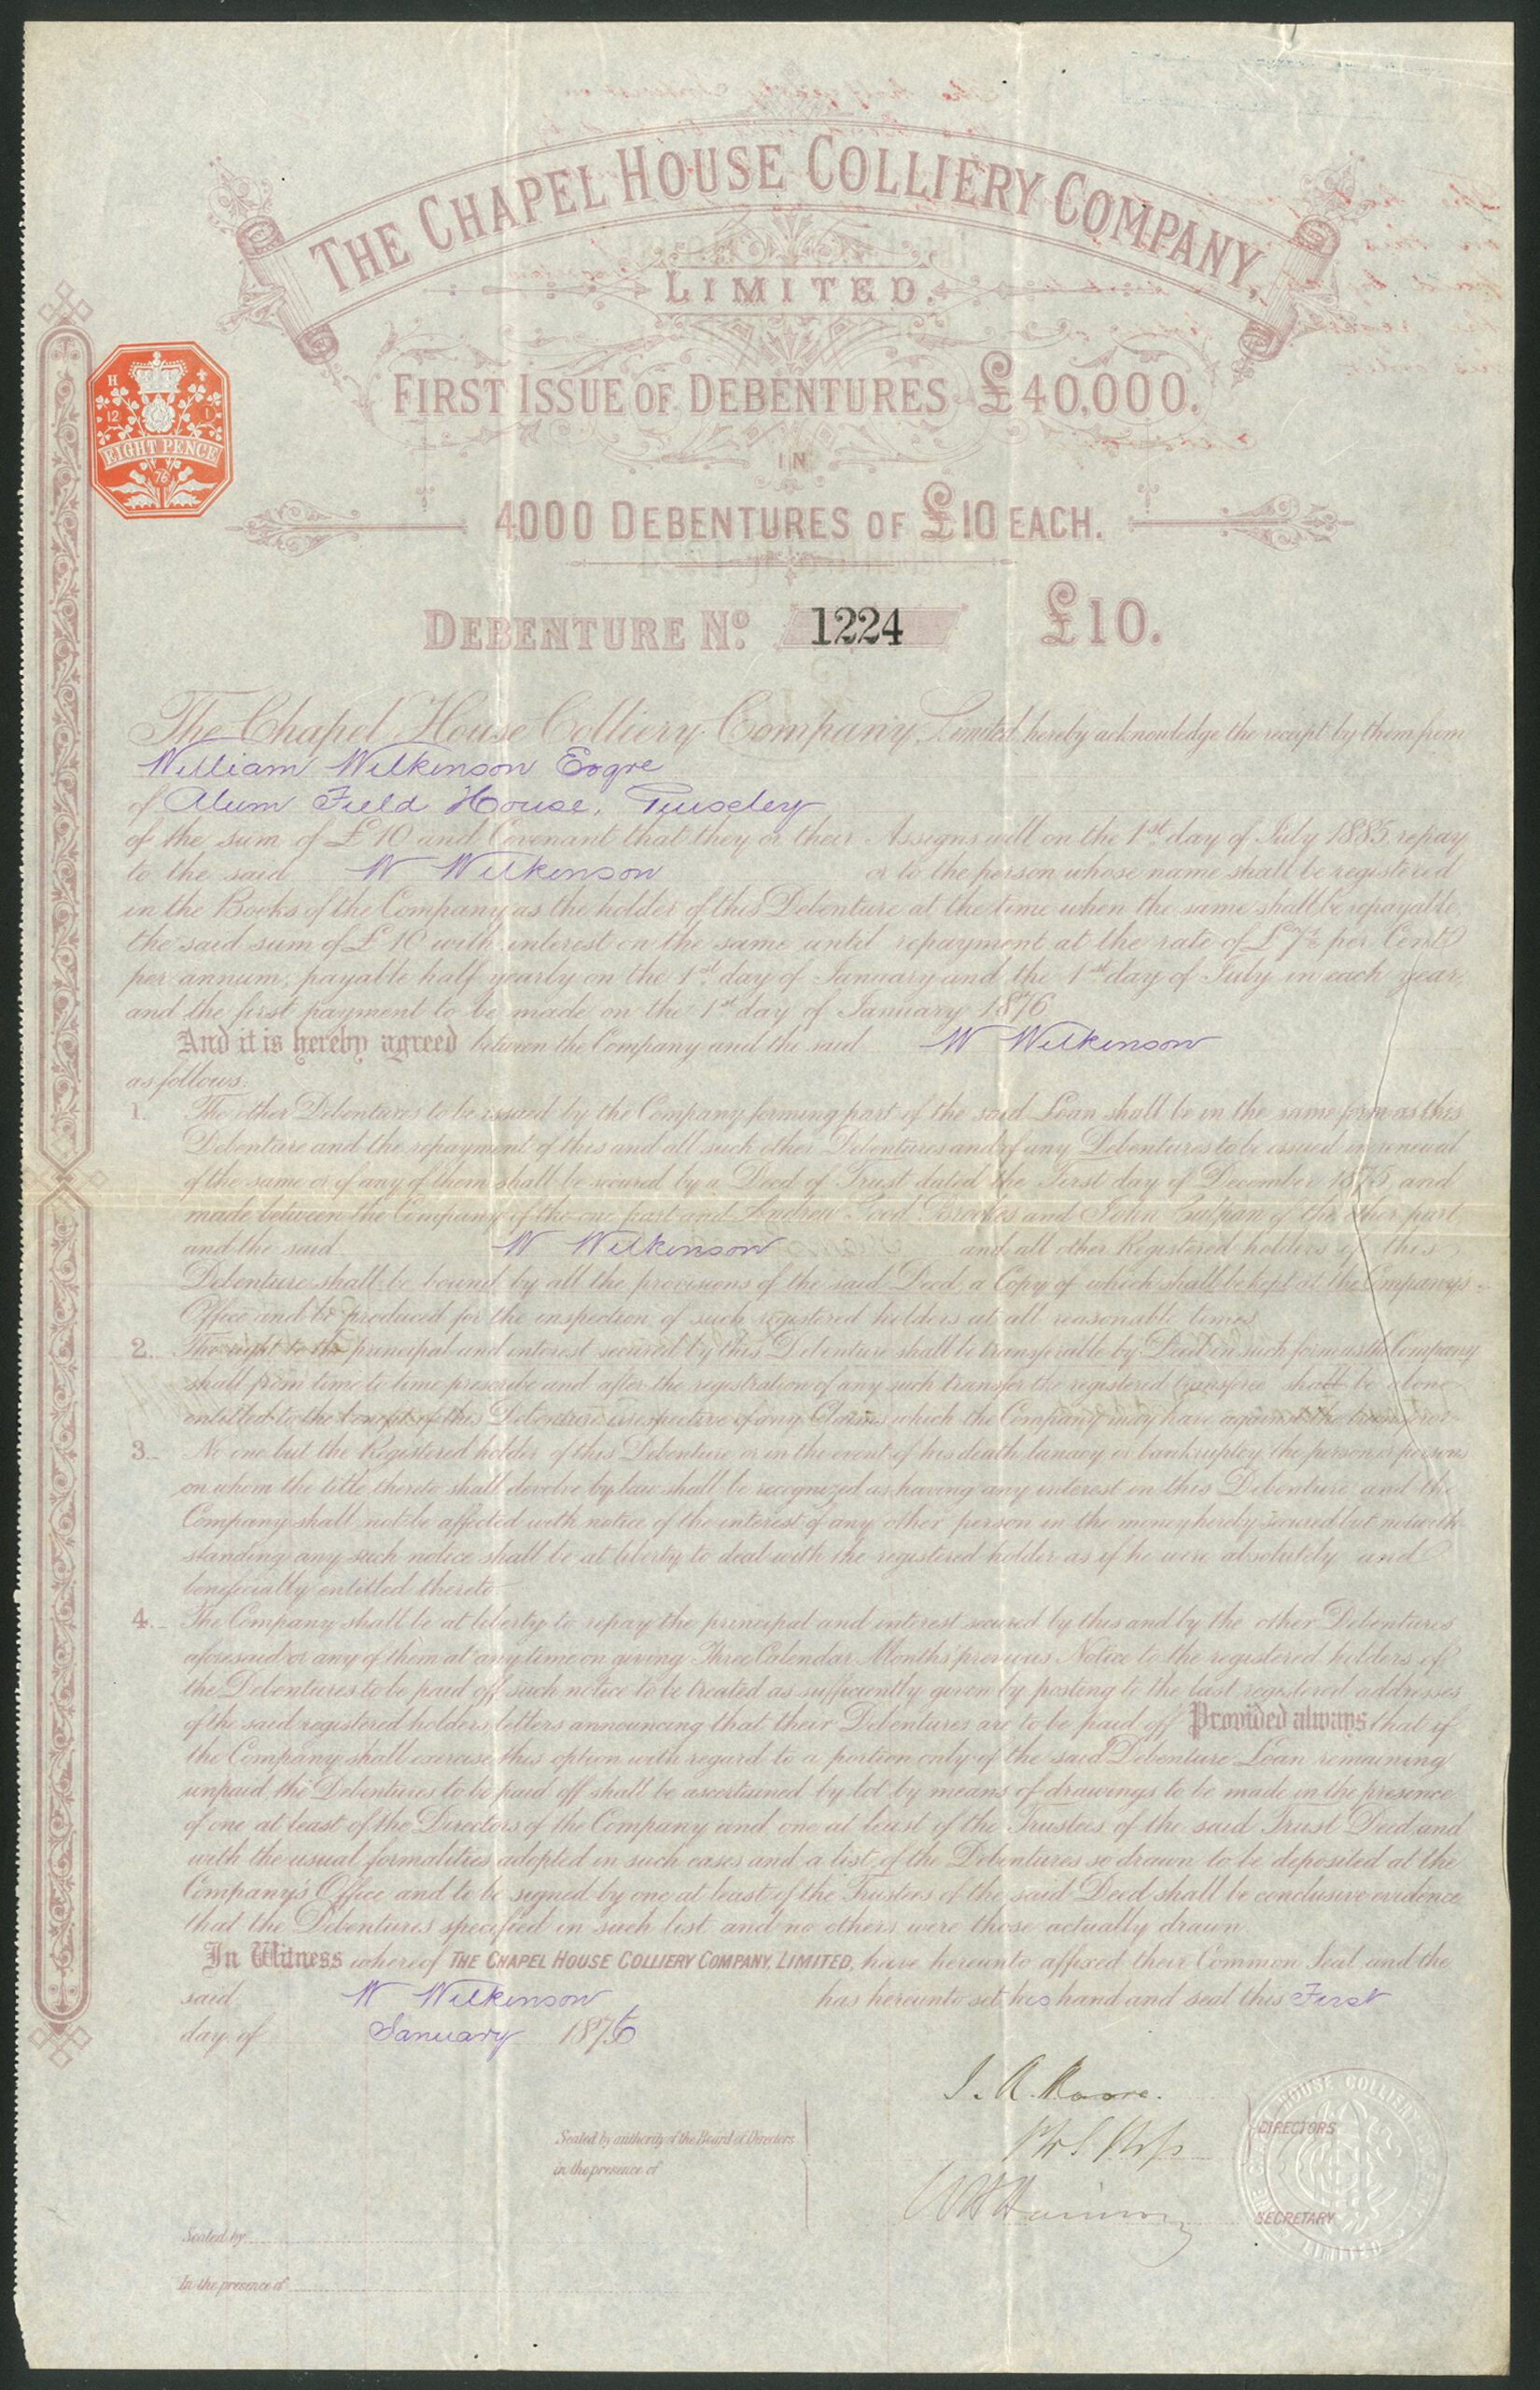 THE CHAPEL HOUSE COLLIERY COMPANY,
LIMITED.
FIRST ISSUE OF DEBENTURES £40,000.
IN
H
12 1
EIGHT PENCE
76
4000 DEBENTURES OF £10 EACH.
DEBENTURE No. 1224 £10.
The Chapel House Colliery Company, Limited, hereby acknowledge the receipt by them from
William Wilkinson Esqre
of Alum Field House,
of the sum of £10 and Covenant that they or their Assigns will on the 1st day of July 1885, repay
to the said W Wilkinson or to the person whose name shall be registered
in the Books of the Company as the holder of this Debenture at the time when the same shall be repayable,
the said sum of £10 with interest on the same until repayment at the rate of per Cent
per annum, payable half yearly on the 1st day of January and the 1st day of July in each year,
and the first payment to be made on the 1st day of January 1876.
And it is hereby agreed between the Company and the said W Wilkinson
as follows:
1. The other Debentures to be issued by the Company forming part of the said Loan shall be in the same form as this
Debenture and the repayment of this and all such other Debentures and of any Debentures to be issued in renewal
of the same or of any of them shall be secured by a Deed of Trust dated the First day of December 1875, and
made between the Company of the one part and Andrew and John of the other part,
and the said W Wilkinson and all other Registered holders of this
Debenture shall be bound by all the provisions of the said Deed, a Copy of which shall be kept at the Company's
Office and be produced for the inspection of such registered holders at all reasonable times.
2. The right to the principal and interest secured by this Debenture shall be transferable by Deed in such form as the Company
shall from time to time prescribe and after the registration of any such transfer the registered transferee shall be alone
entitled to the benefit of this Debenture irrespective of any Claims which the Company may have against the transferor.
3. No one but the Registered holder of this Debenture or in the event of his death, lunacy or bankruptcy the person or persons
on whom the title thereto shall devolve by law shall be recognized as having any interest in this Debenture and the
Company shall not be affected with notice of the interest of any other person in the money hereby secured but notwith-
standing any such notice shall be at liberty to deal with the registered holder as if he were absolutely and
beneficially entitled thereto.
4. The Company shall be at liberty to repay the principal and interest secured by this and by the other Debentures
aforesaid or any of them at any time on giving Three Calendar Months' previous Notice to the registered holders of
the Debentures to be paid off such notice to be treated as sufficiently given by posting to the last registered addresses
of the said registered holders, letters announcing that their Debentures are to be paid off Provided always that if
the Company shall exercise this option with regard to a portion only of the said Debenture Loan remaining
unpaid the Debentures to be paid off shall be ascertained by lot by means of drawings to be made in the presence
of one at least of the Directors of the Company and one at least of the Trustees of the said Trust Deed, and
with the usual formalities adopted in such cases and a list of the Debentures so drawn to be deposited at the
Company's Office and to be signed by one at least of the Trustees of the said Deed shall be conclusive evidence
that the Debentures specified in such list and no others were those actually drawn.
In Witness whereof THE CHAPEL HOUSE COLLIERY COMPANY, LIMITED, have hereunto affixed their Common Seal, and the
said W Wilkinson has hereunto set his hand and seal this First
day of January 1876
J. A. Moore.
Sealed by authority of the Board of Directors
in the presence of
DIRECTORS
SECRETARY
HOUSE COLLIERY
LIMITED
Sealed by
In the presence of